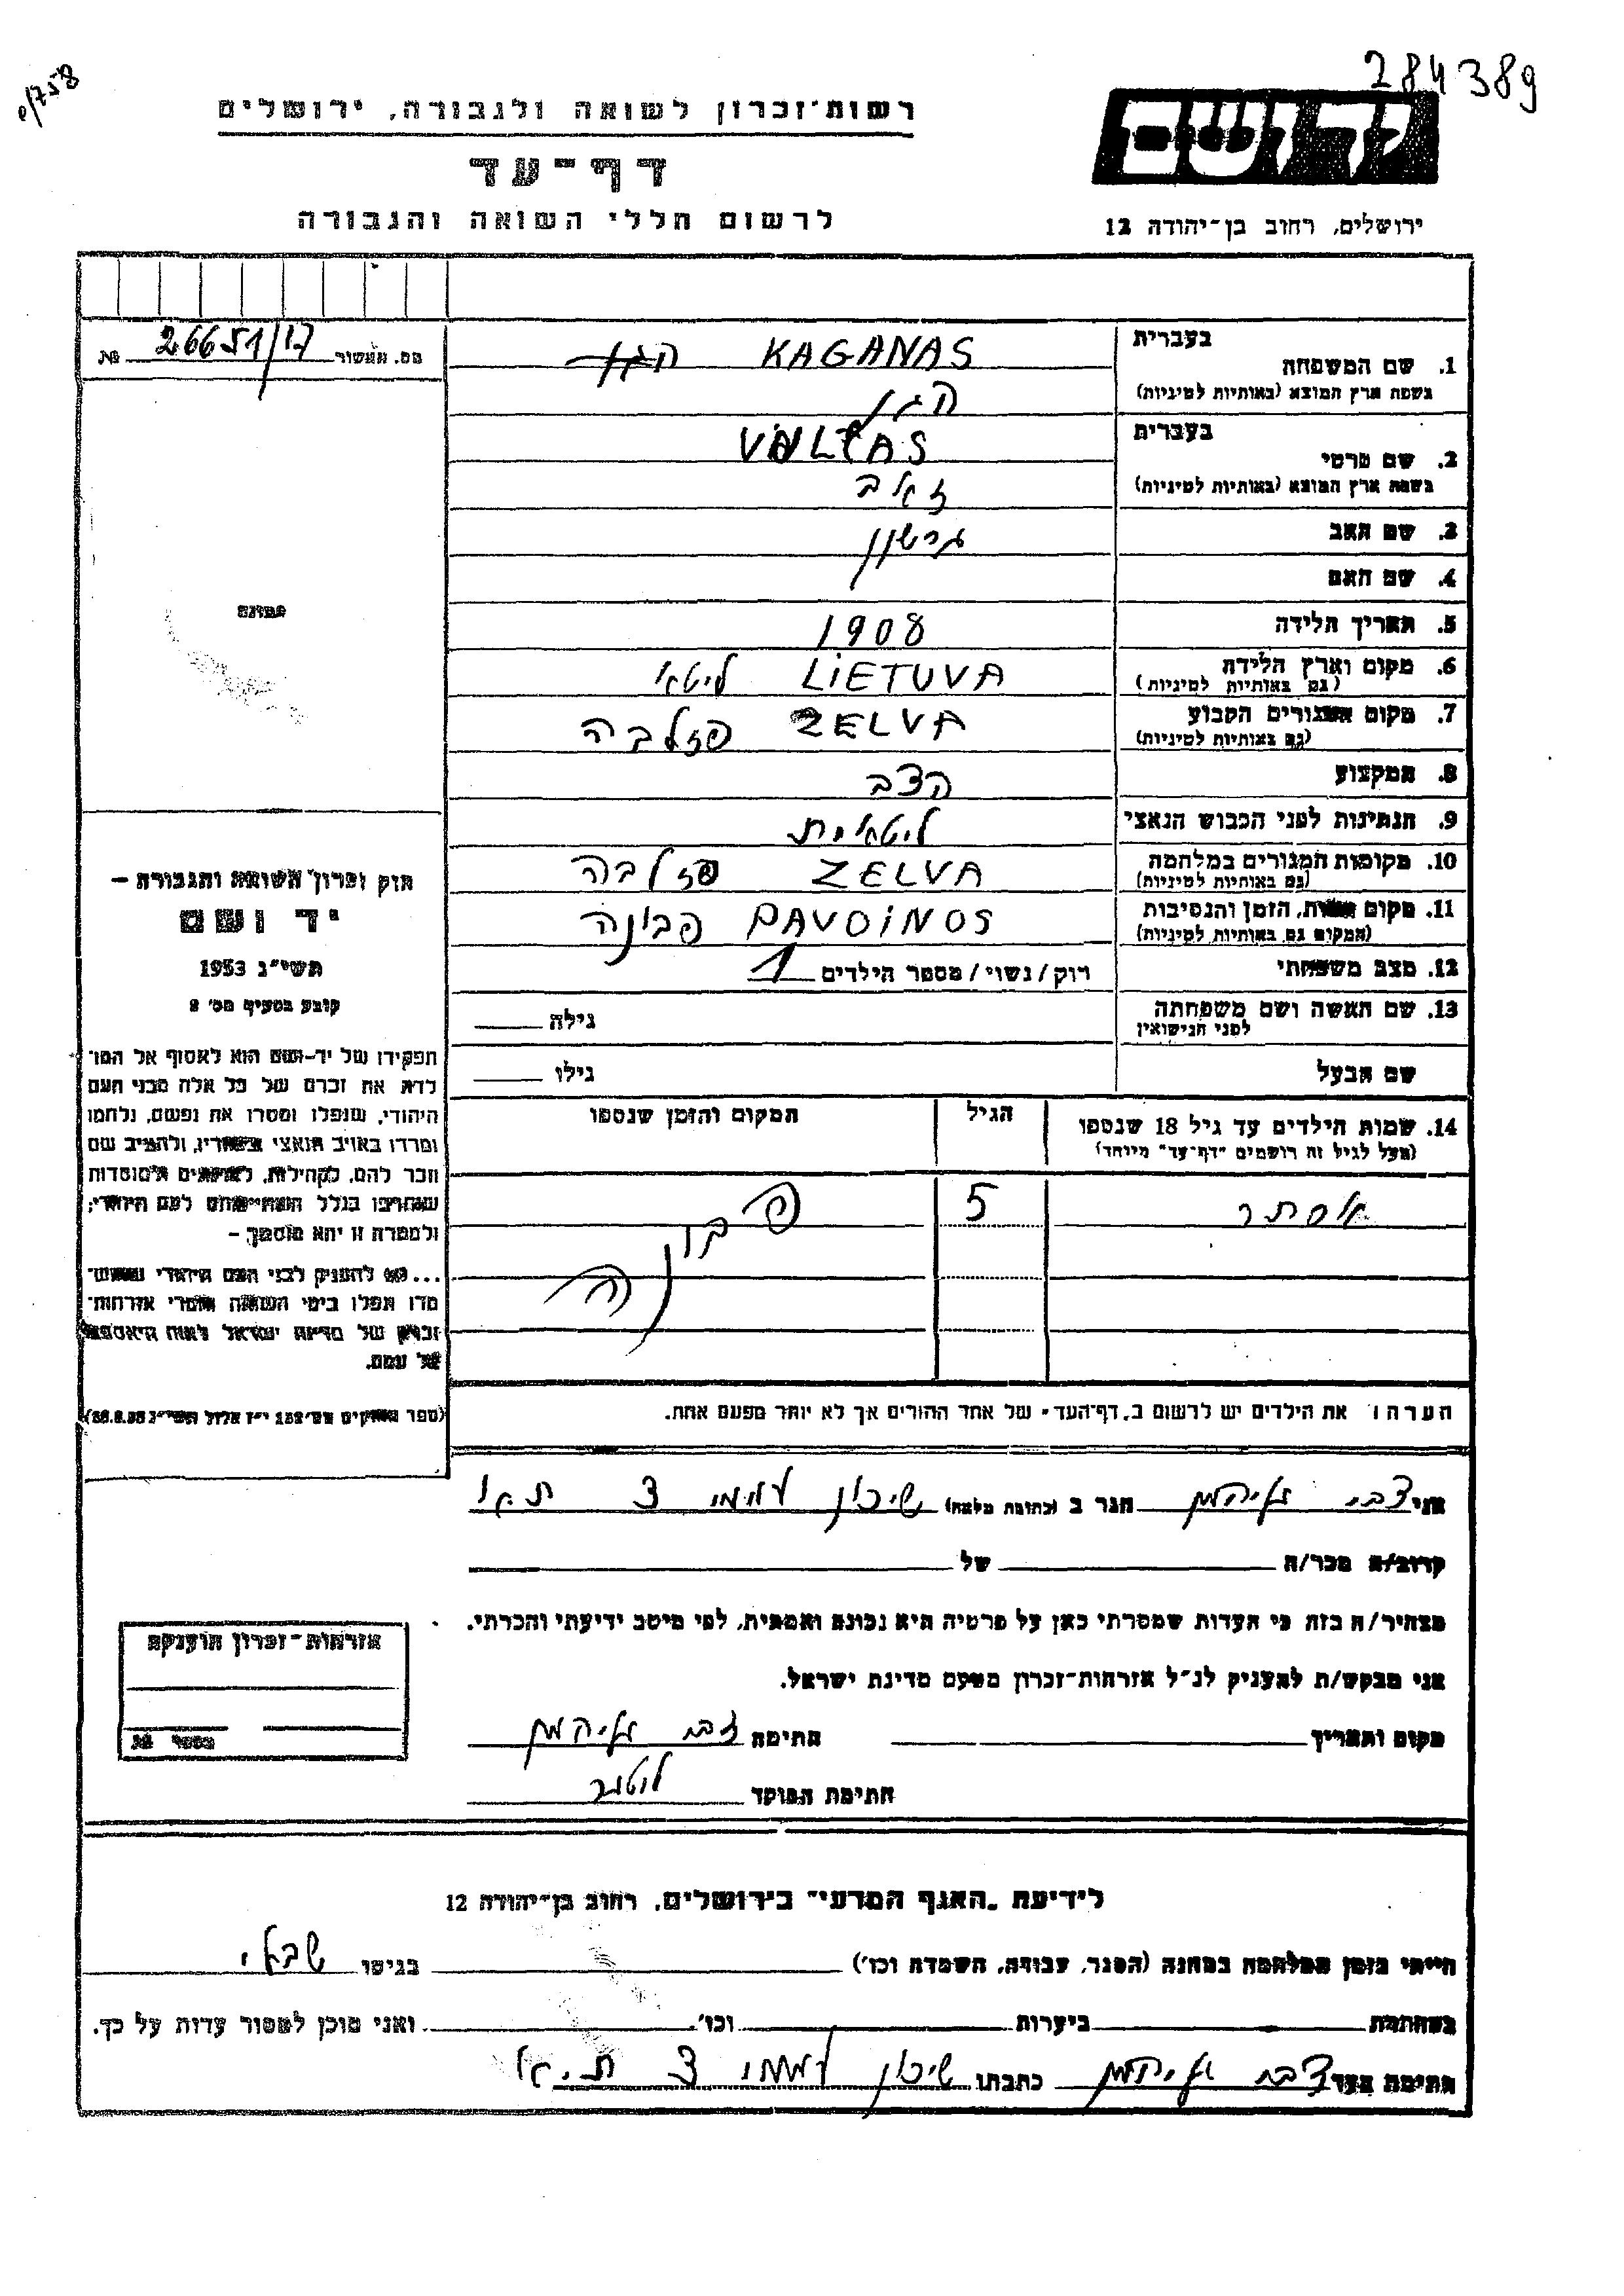 284389
רשות־זכרון לשואה ולגבורה, ירושלים
דף־עד
לרשום חללי השואה והגבורה
יד ושם
ירושלים, רחוב בן־יהודה 12
מס. תאשור 26651/17 No.
בעברית
1. שם המשפחה KAGANAS
בשפת ארץ המוצא (באותיות לטיניות)
בעברית
2. שם פרטי
בשפת ארץ המוצא (באותיות לטיניות) זאב
3. שם האב גרשון
4. שם האם
5. תאריך הלידה 1908
6. מקום וארץ הלידה LIETUVA ליטאי
(גם באותיות לטיניות)
7. מקום המגורים הקבוע ZELVA
(גם באותיות לטיניות)
8. המקצוע קצב
9. הנתינות לפני הכבוש הנאצי ליטאית
10. מקומות המגורים במלחמה ZELVA
(גם באותיות לטיניות)
11. מקום המות, הזמן והנסיבות PAVOINOS פבונה
(המקום גם באותיות לטיניות)
12. מצב משפחתי רוק/נשוי/מספר הילדים 1
13. שם האשה ושם משפחתה גילה
לפני הנישואין
שם הבעל גילו
14. שמות הילדים עד גיל 18 שנספו הגיל המקום והזמן שנספו
(מעל לגיל זה רושמים "דף־עד" מיוחד)
אסתר 5 פבונה
הערה: את הילדים יש לרשום ב"דף־העד" של אחד ההורים אך לא יותר מפעם אחת.
תמונה
חוק זכרון השואה והגבורה —
יד ושם
תשי"ג 1953
קובע בסעיף מס' 2
תפקידו של יד־ושם הוא לאסוף אל המו־
לדת את זכרם של כל אלה מבני העם
היהודי, שנפלו ומסרו את נפשם, נלחמו
ומרדו באויב הנאצי ובעוזריו, ולהציב שם
וזכר להם, לקהילות, לארגונים ולמוסדות
שנחרבו בגלל השתייכותם לעם היהודי;
ולמטרה זו יהא מוסמך —
...(4) להעניק לבני העם היהודי שהוש־
מדו ונפלו בימי השואה והמרי אזרחות־
זכרון של מדינת ישראל לאות היאספם
אל עמם.
אני צבי חגר ב (כתובת מלאה) שיכון עממי
קרוב/ה מכר/ה של
מצהיר/ה בזה כי העדות שמסרתי כאן על פרטיה היא נכונה ואמתית, לפי מיטב ידיעתי והכרתי.
אני מבקש/ת להעניק לנ"ל אזרחות־זכרון מטעם מדינת ישראל.
מקום ותאריך חתימה צבי
חתימת הפוקד
אזרחות־זכרון הוענקה
מספר
לידיעת "האגף המדעי" בירושלים, רחוב בן־יהודה 12
הייתי בזמן המלחמה במחנה (הסגר, עבודה, השמדה וכו') בגיטו שבלי
במחתרת ביערות וכו' ואני מוכן למסור עדות על כך.
חתימת העד צבי כתבתו שיכון עממי